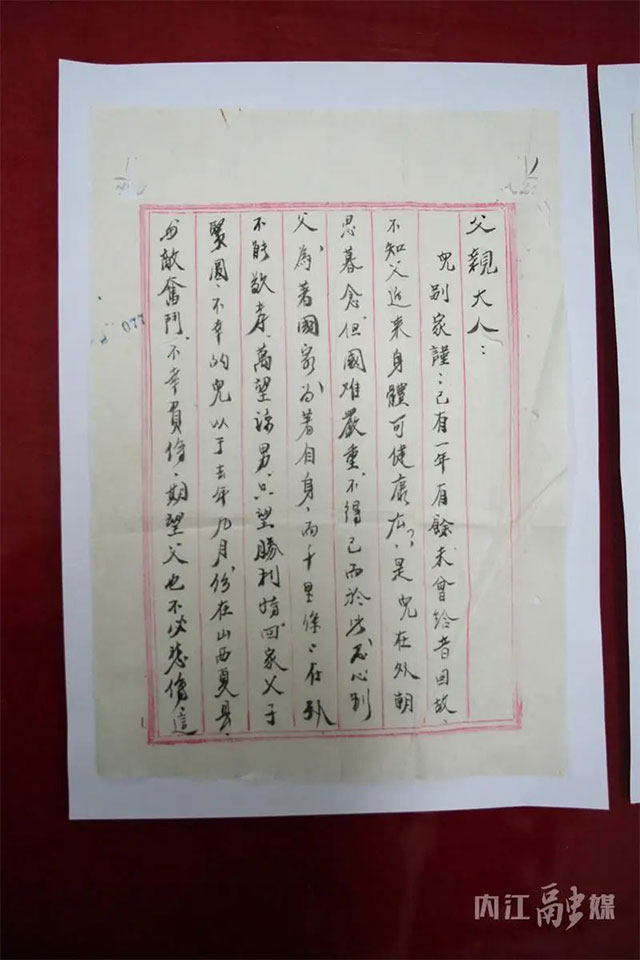 父親大人：
兒别家謹：已有一年有餘未曾給音回故、
不知父近来身體可健康広？是兒在外朝
思暮念，但國难嚴重，不得已而於此忍心别
父，為着國家為着自身，而千里係：在外
不能敬孝，萬望諒男，只望勝利時回家父子
聚圓，不幸的兒以于去年九月份在山西夏县、
与敵奮鬥，不幸負傷，期望父也不必悲傷，這
077
内江融媒